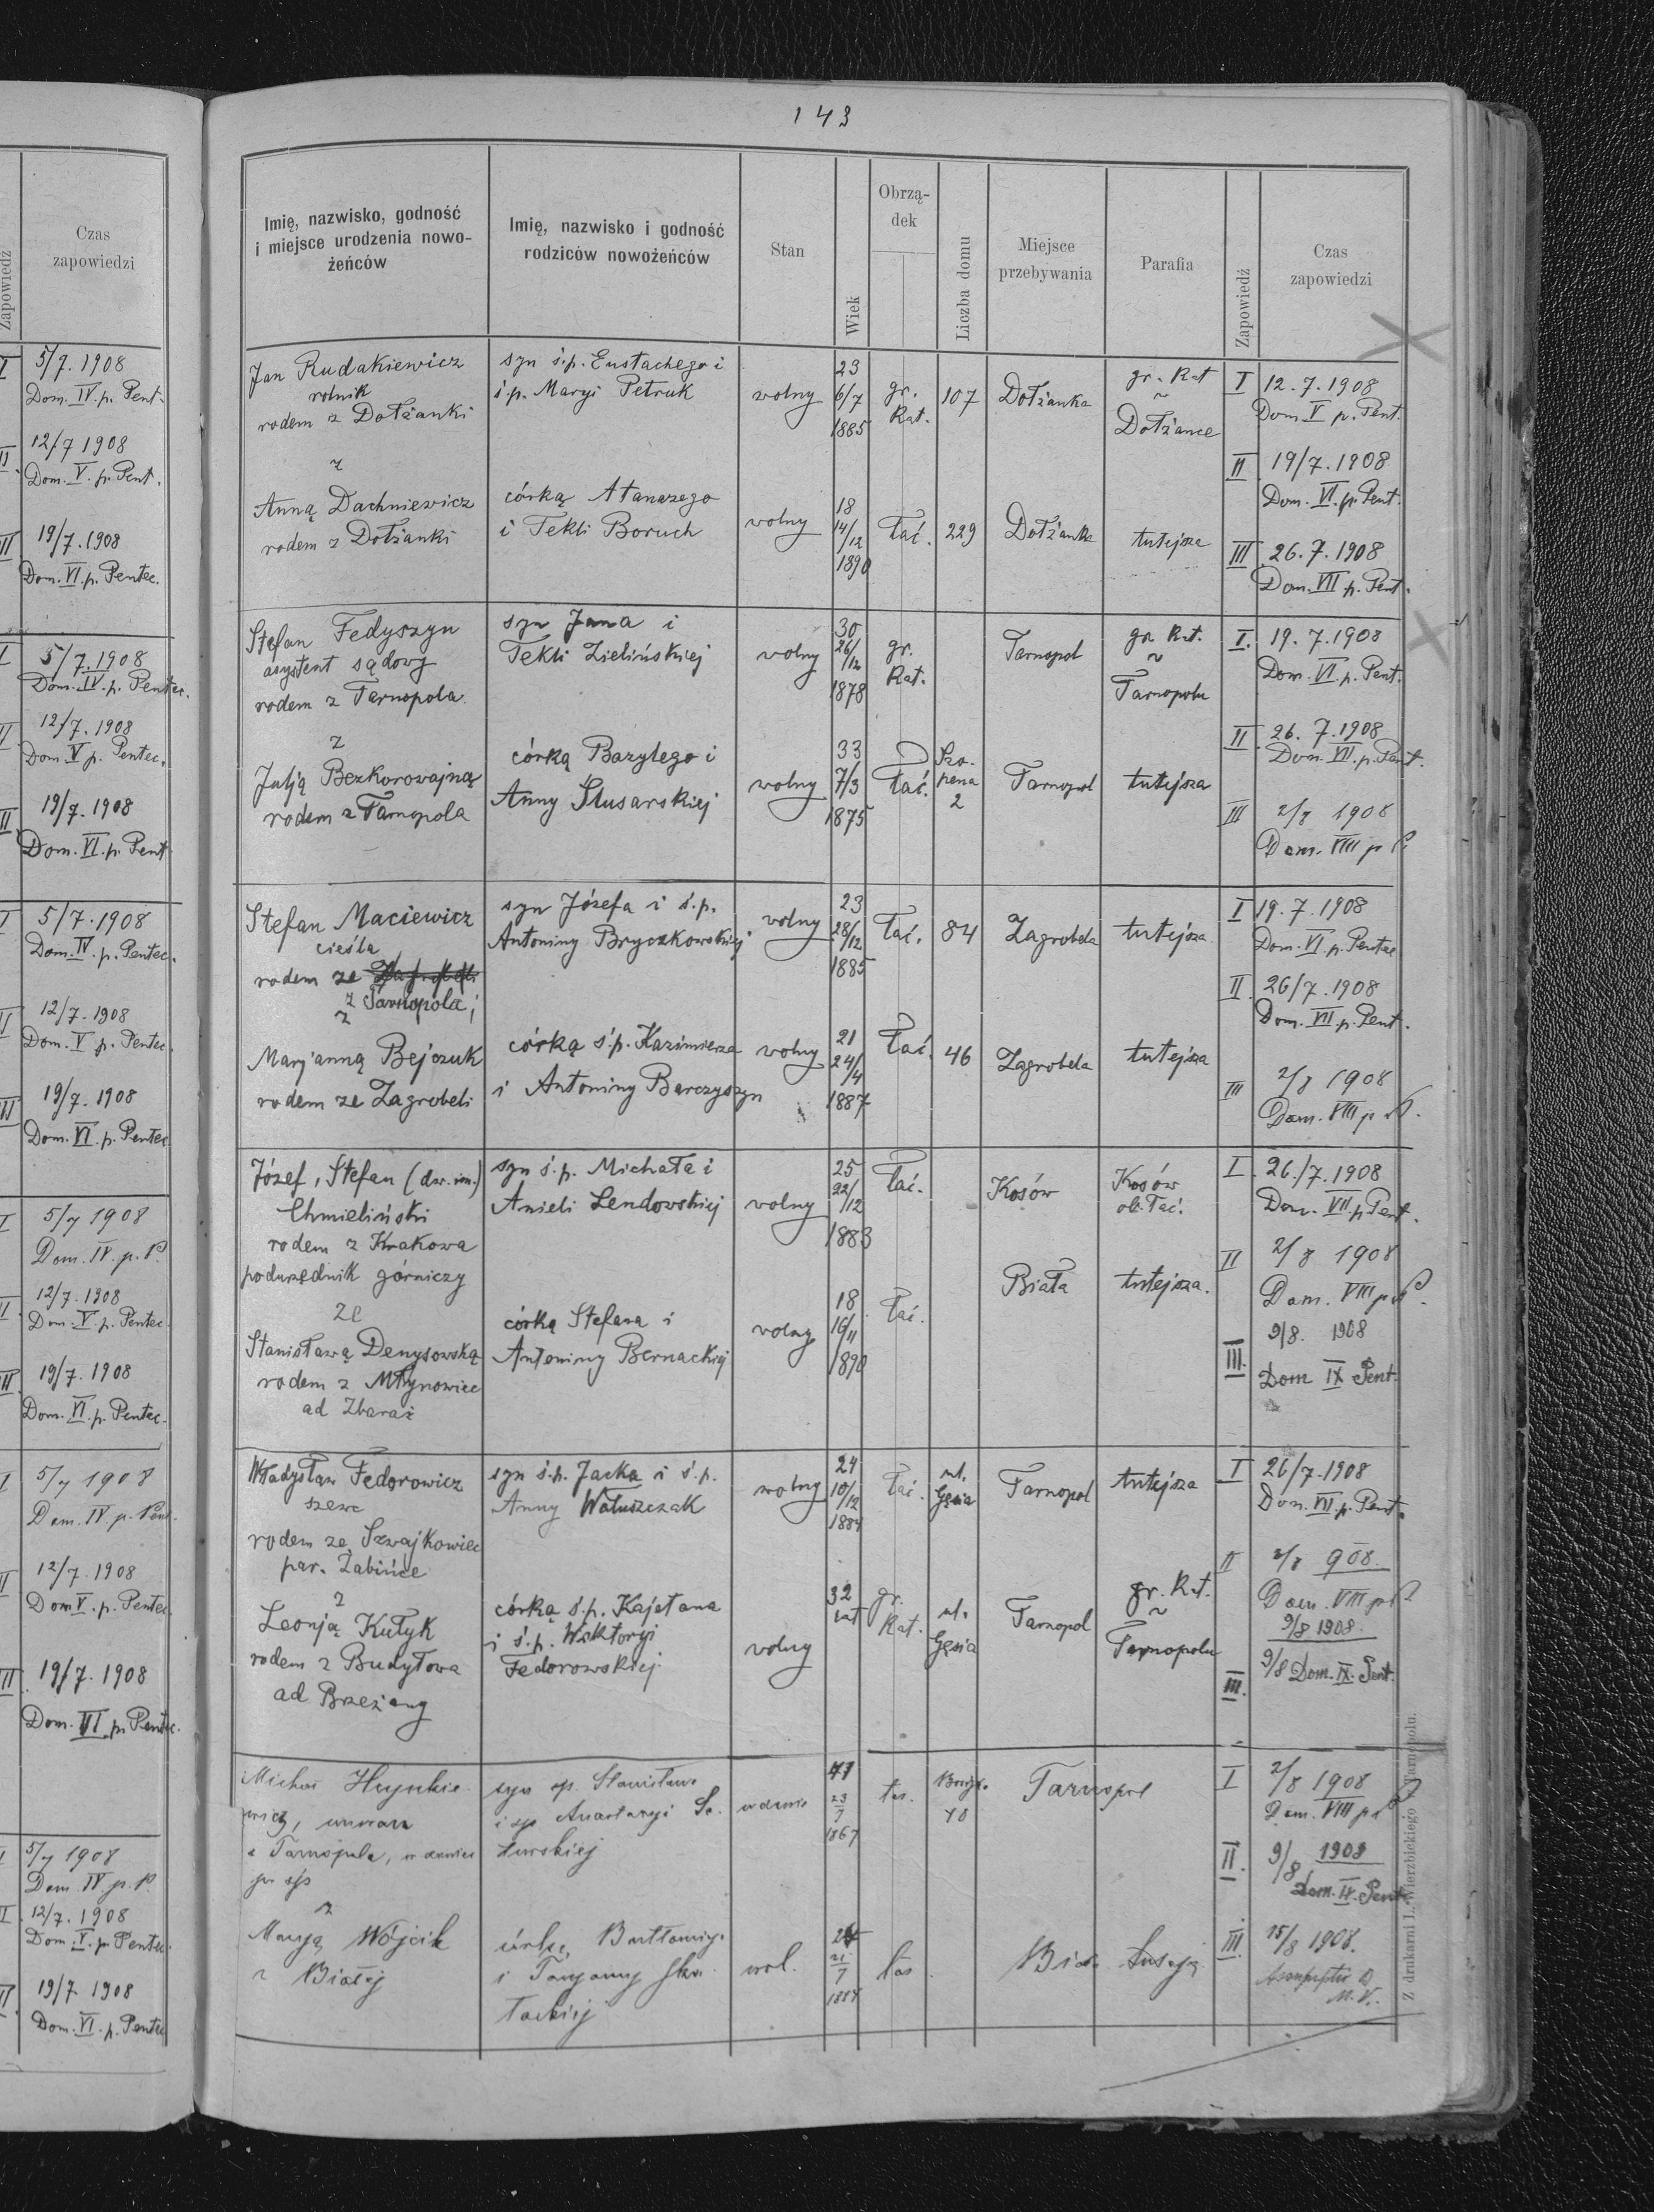 143
Zapowiedź
Czas
zapowiedzi
I 5/7. 1908
Dom. IV. p. Pent.
II 12/7 1908
Dom. V. p. Pent.
III 19/7. 1908
Dom. VI. p. Pentec.
I 5/7. 1908
Dom. IV. p. Pentec.
II 12/7. 1908
Dom V p. Pentec.
III 19/7. 1908
Dom. VI. p. Pent
I 5/7. 1908
Dom. IV. p. Pentec.
II 12/7. 1908
Dom. V p. Pentec.
III 19/7. 1908
Dom. VI. p. Pentec
I 5/7 1908
Dom. IV. p. P.
II 12/7. 1908
Dom. V. p. Pentec.
III 19/7. 1908
Dom. VI. p. Pentec.
I 5/7 1908
Dom. IV p. Pent.
II 12/7. 1908
Dom V. p. Pentec.
III 19/7. 1908
Dom. VI. p. Pentec.
I 5/7 1908
Dom. IV p. P.
II 12/7. 1908
Dom. V. p. Pentec.
III 19/7 1908
Dom. VI. p. Pentec
Imię, nazwisko, godność
i miejsce urodzenia nowo-
żeńców
Imię, nazwisko i godność
rodziców nowożeńców
Stan
Wiek
Obrzą-
dek
Liczba domu
Miejsce
przebywania
Parafia
Zapowiedź
Czas
zapowiedzi
Jan Rudakiewicz
rolnik
rodem z Dołżanki
syn ś.p. Eustachego i
ś.p. Maryi Petruk
wolny
23
6/7
1885
gr.
Kat.
107
Dołżanka
gr. Kat
~
Dołżance
I 12. 7. 1908
Dom V p. Pent.
II 19/7. 1908
Dom. VI. p. Pent.
z
Anną Dachniewicz
rodem z Dołżanki
córką Atanazego
i Tekli Boruch
wolny
18
14/12
1890
łać.
229
Dołżanka
tutejsza
III 26. 7. 1908
Dom. VII p. Pent.
Stefan Fedyszyn
asystent sądowy
rodem z Tarnopola
syn Jana i
Tekli Zielińskiej
wolny
30
26/12
1878
gr.
Kat.
Tarnopol
gr. Kat.
~
Tarnopolu
I. 19. 7. 1908
Dom. VI. p. Pent.
II 26. 7. 1908
Dom. VII. p. Pent.
z
Julją Bezkorowajną
rodem z Tarnopola
córką Bazylego i
Anny Ślusarskiej
wolny
33
7/3
1875
łać.
Szo-
pena
2
Tarnopol
tutejsza
III 2/8 1908
Dom. VIII p P.
Stefan Maciewicz
cieśla
rodem ze
z Tarnopola;
syn Józefa i ś.p.
Antoniny Bryczkowskiej
wolny
23
28/12
1885
łać.
84
Zagrobela
tutejsza
I 19. 7. 1908
Dom. VI p. Pentec
II. 26/7. 1908
Dom. VII. p. Pent.
z
Maryanną Bejczuk
rodem ze Zagrobeli
córką ś.p. Kazimierza
i Antoniny Barczyszyn
wolny
21
24/4
1887
łać.
46
Zagrobela
tutejsza
III 2/8 1908
Dom. VIII p P.
Józef, Stefan (dw. im.)
Chmieliński
rodem z Krakowa
podurzędnik górniczy
syn ś.p. Michała i
Anieli Lendowskiej
wolny
25
22/12
1883
łać.
Kosów
Kosów
ob. łać.
I. 26./7. 1908
Dom. VII. p Pent.
II 2/8 1908
Dom. VIII p P.
ze
Stanisławą Denysowską
rodem z Młynowiec
ad Zbaraż
córką Stefana i
Antoniny Bernackiej
wolny
18
16/11
1890
łać.
Biała
tutejsza.
III. 9/8. 1908
Dom IX Pent.
Władysław Fedorowicz
szewc
rodem ze Szwajkowiec
par. Żabińce
syn ś.p. Jacka i ś.p.
Anny Wałuszczak
wolny
24
10/12
1884
łać.
ul.
Gęsia
Tarnopol
tutejsza
I 26/7. 1908
Dom. VII. p. Pent.
II 2/8 908.
Dom. VIII p P
9/8 1908.
z
Leonją Kułyk
rodem z Budyłowa
ad Brzeżany
córką ś.p. Kajetana
i ś.p. Wiktoryi
Fedorowskiej
wolny
32
lat
gr.
Kat.
ul.
Gęsia
Tarnopol
gr. Kat.
~
Tarnopolu
III. 9/8 Dom. IX. Pent.
z Tarnopola, wdowiec
41
23/9
1867
40
Tarnopol
I 2/8 1908
Dom. VIII p P.
II. 9/8 1908
Dom. IX. Pent.
z
Maryą Wójcik
z Białej
córką Bartłomieja
wol.
1884
III. 15/8 1908.
M.V.
Z drukarni L. Wierzbickiego w Tarnopolu.